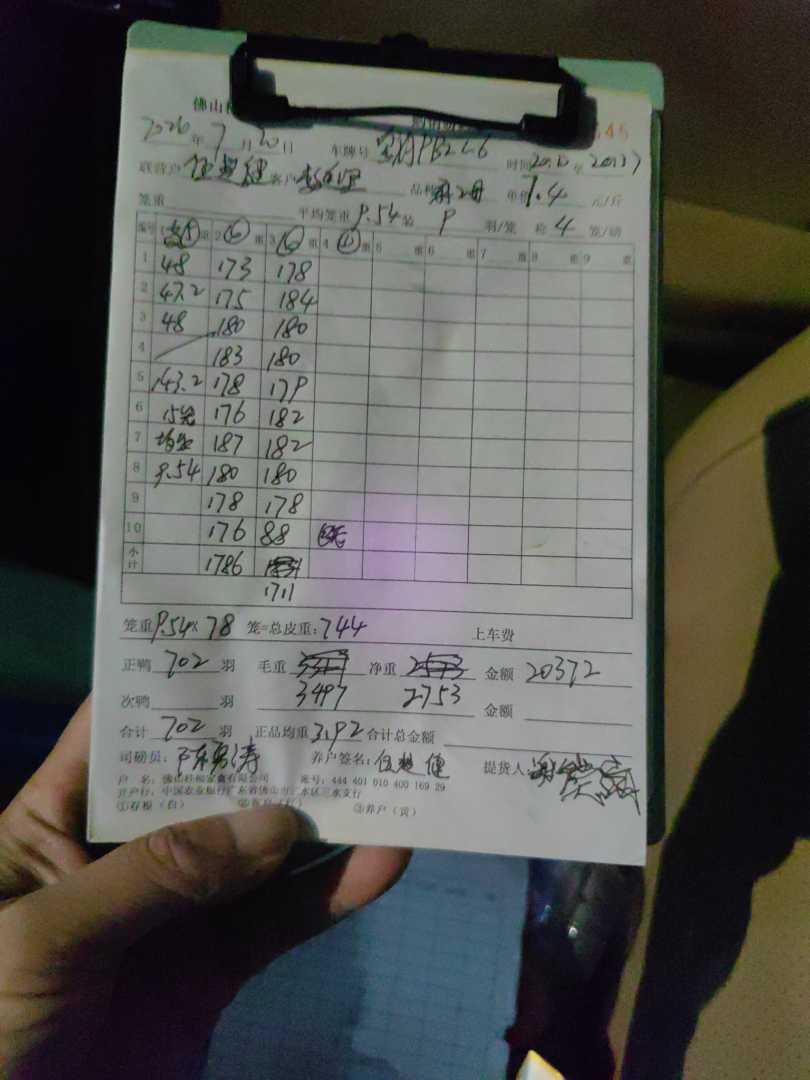 佛山 645
2026年 7月20日 车牌号 时间20
联营户 客户 品种 单价 7.4 元/斤
笼重 平均笼重 9.54 装 9 羽/笼 称 4 笼/磅
编号 1 重 2 重 3 重 4 重 5 重 6 重 7 重 8 重 9 重
1 48 173 178
2 47.2 175 184
3 48 180 180
4 183 180
5 143.2 178 179
6 15笼 176 182
7 187 182
8 9.54 180 180
9 178 178
10 176 88
小计 1786
1711
笼重 9.54 x 78 笼=总皮重:744 上车费
正鸭 702 羽 毛重 净重 金额 20372
3497 2753
次鸭 羽 金额
合计 702 羽 正品均重 3.92 合计总金额
司磅员: 养户签名: 提货人:
户 名: 佛山 家禽有限公司 账号: 444 401 010 400 169 29
开户行: 中国农业银行广东省佛山市三水区三水支行
①存根(白) ②客户(红) ③养户(黄)